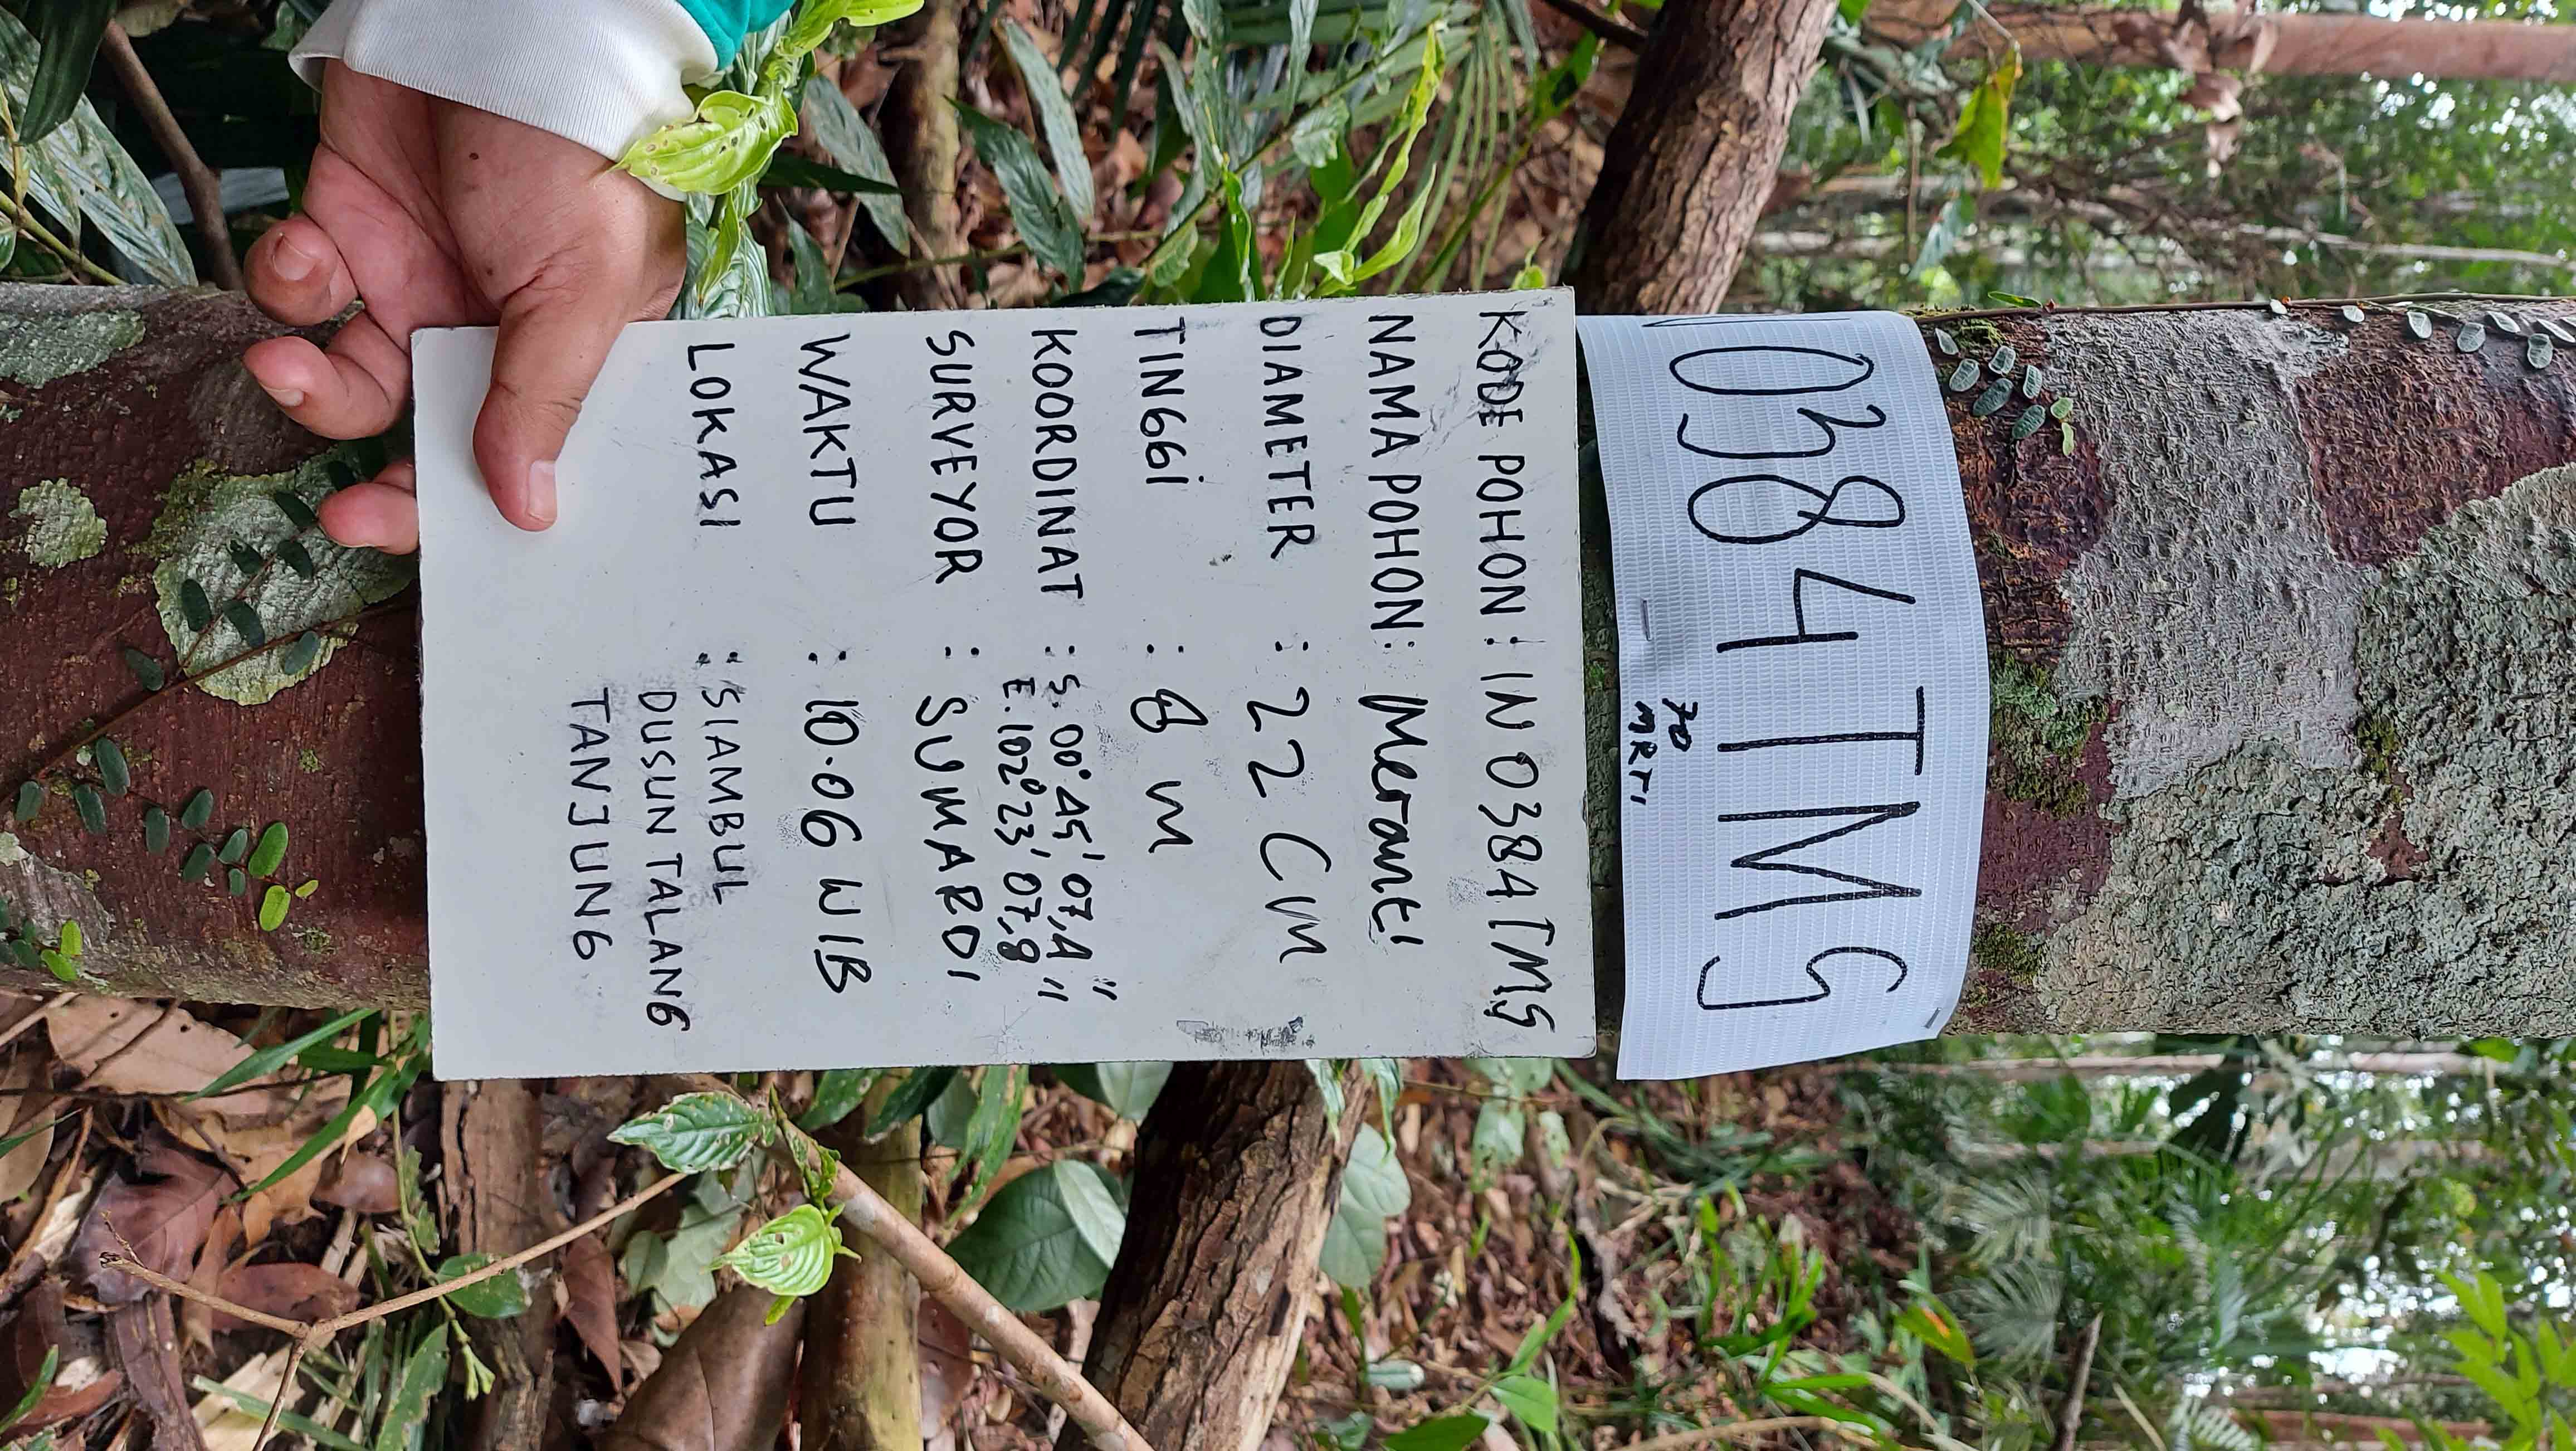 N0384TMS
70
MRTI
KODE POHON : IN 0384TMS
NAMA POHON : Meranti
DIAMETER : 22 CM
TINGGI : 8 m
KOORDINAT : S. 00° 45' 07,4"
E. 102° 23' 07,8"
SURVEYOR : SUMARDI
WAKTU : 10.06 WIB
LOKASI : SIAMBUL
DUSUN TALANG
TANJUNG